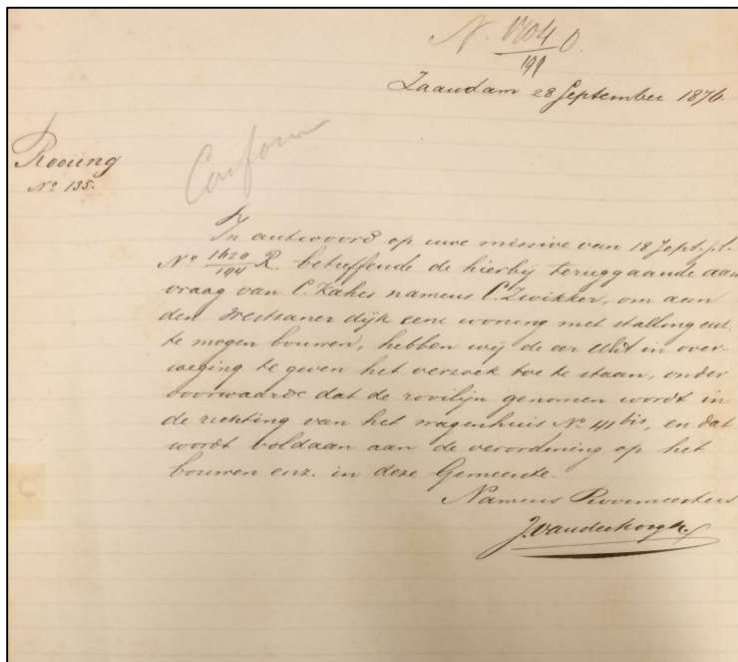 N. 1704 O.
199
Zaandam 28 September 1876.
Rooiing
No 135.
Conform
In antwoord op uwe missive van 18 Sept. jl.
No 1620 R. betreffende de hierbij teruggaande aan
194
vraag van C. Kakes namens C. Zwikker, om aan
den Westzaner dijk eene woning met stalling enz.
te mogen bouwen, hebben wij de eer UEd in over-
weging te geven het verzoek toe te staan, onder
voorwaarde dat de rooilijn genomen wordt in
de richting van het wagenhuis No 41 bis, en dat
wordt voldaan aan de verordening op het
bouwen enz. in deze Gemeente.
Namens Rooimeesters